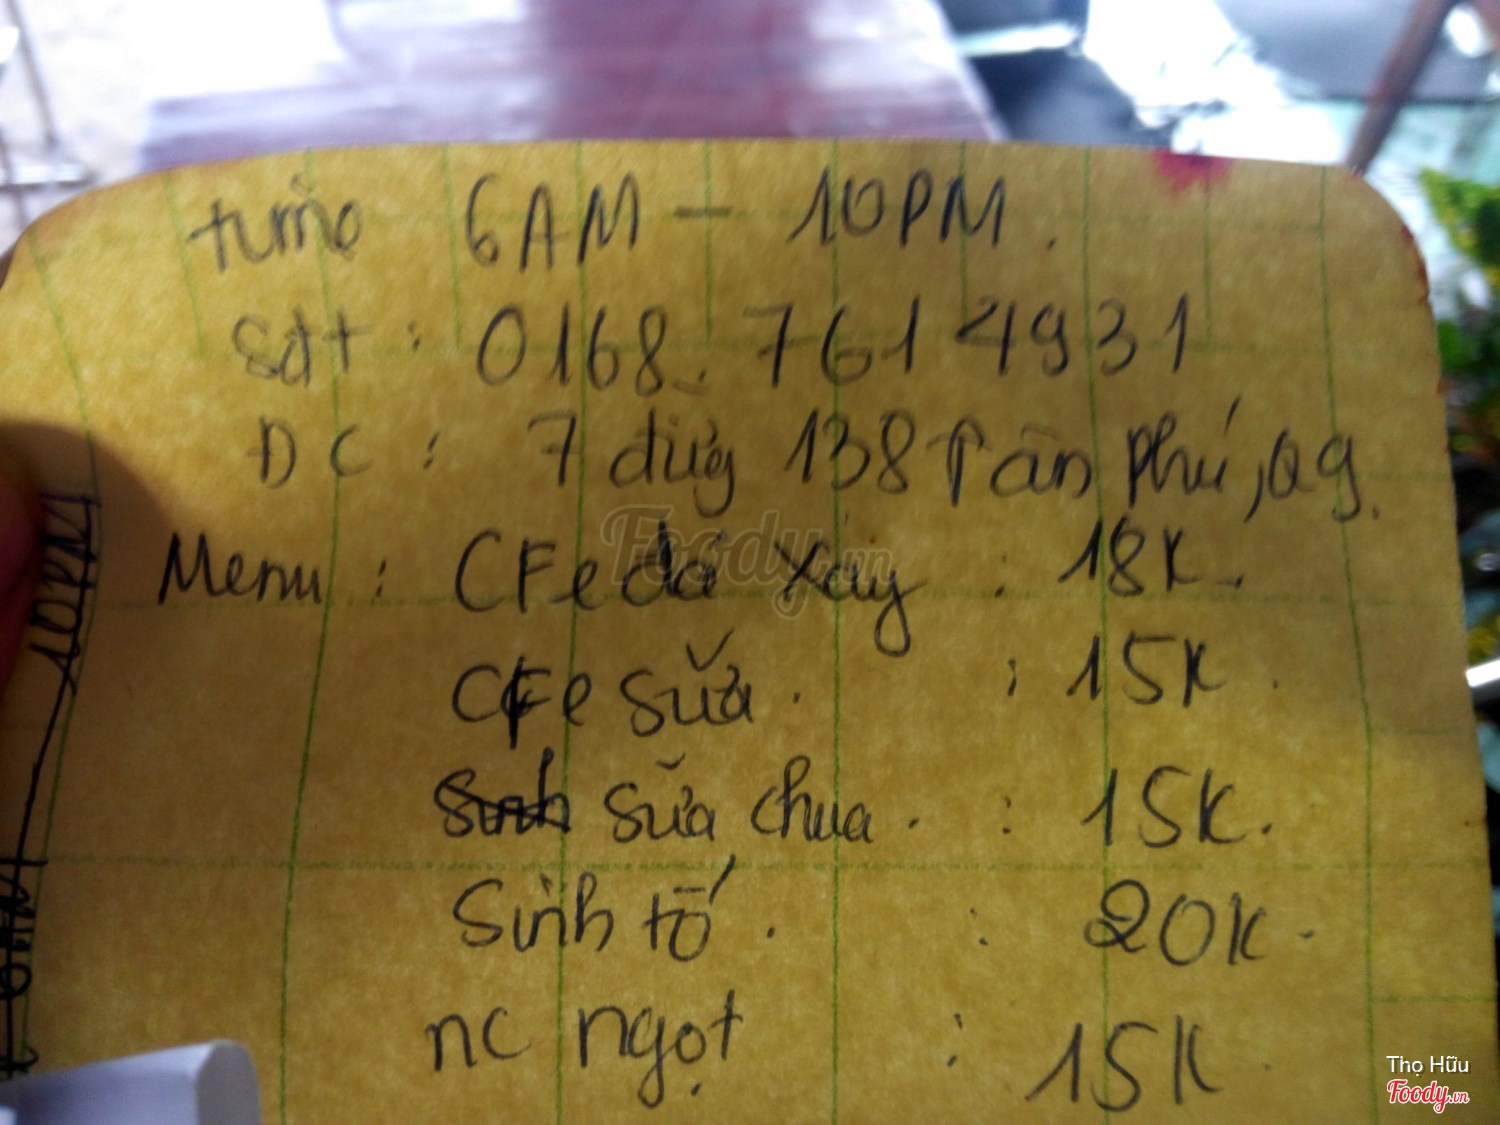 6AM - 10PM.
sdt : 0168. 7614931
ĐC : 7 đường 138 Tân Phú, Q9.
Menu : CFe đá xay : 18K.
CFe sữa. : 15K.
sữa chua. : 15K.
Sinh tố. : 20K.
nc ngọt : 15K.
Foody.vn
10PM
6AM
Thọ Hữu
Foody.vn